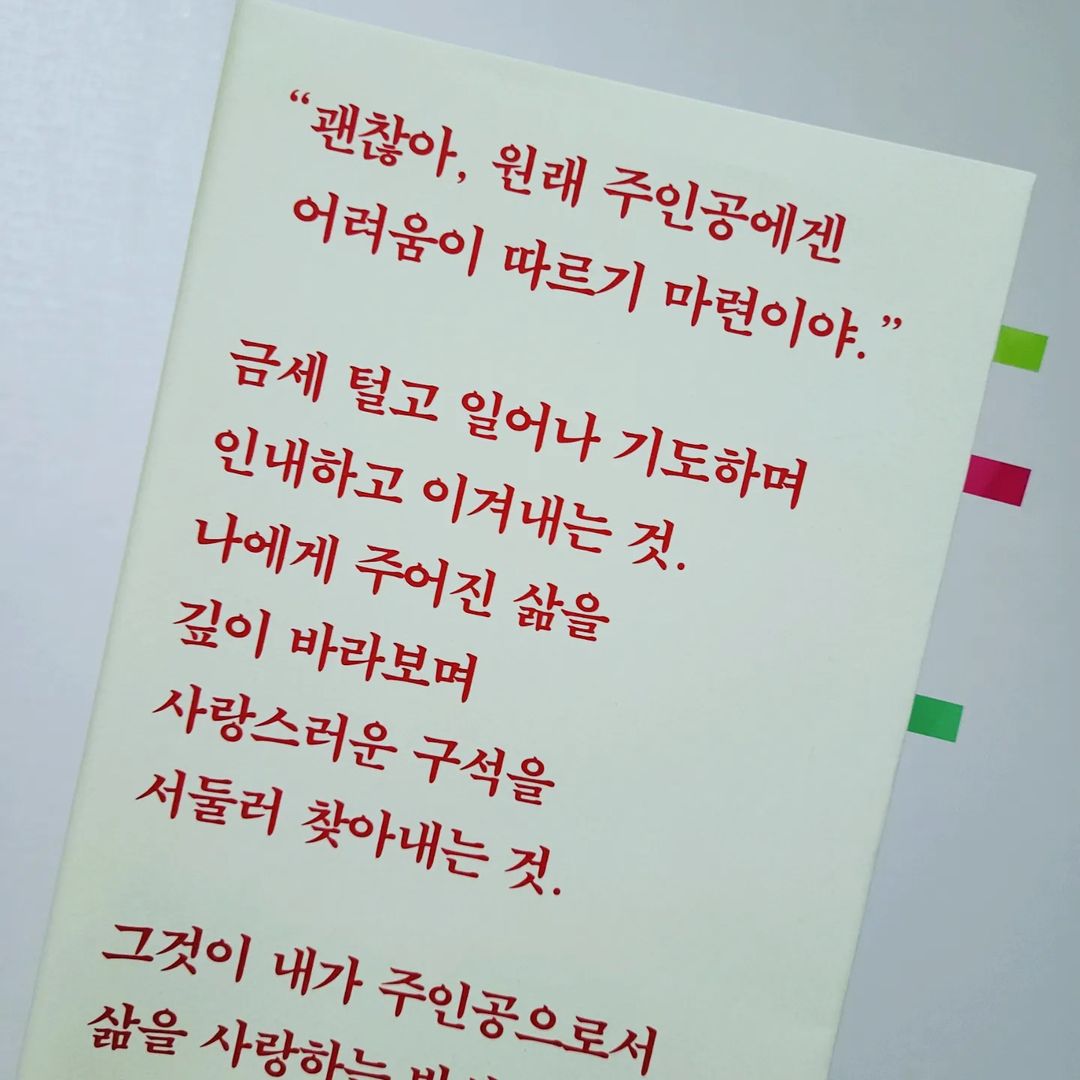 “괜찮아, 원래 주인공에겐
어려움이 따르기 마련이야.”
금세 털고 일어나 기도하며
인내하고 이겨내는 것.
나에게 주어진 삶을
깊이 바라보며
사랑스러운 구석을
서둘러 찾아내는 것.
그것이 내가 주인공으로서
삶을 사랑하는